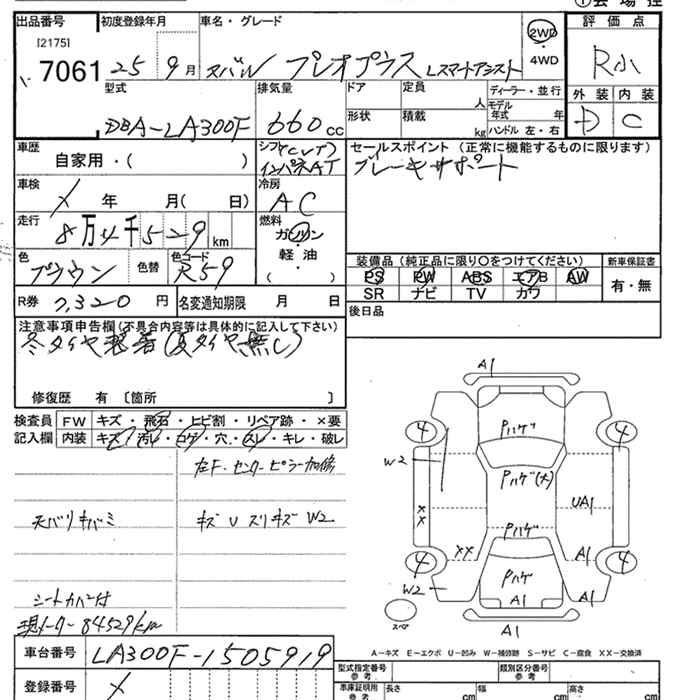 ① 会場控
出品番号 初度登録年月 車名・グレード 評価点
[2175]
7061 25年9月 スバル プレオプラス Lスマートアシスト 2WD・4WD R小
型式 排気量 ドア 定員 人 ディーラー・並行 外装 内装
DBA-LA300F 660cc 形状 積載 kg モデル年式 年 ハンドル 左・右 D C
車歴 自家用・( ) シフト(CVT) インパネAT セールスポイント(正常に機能するものに限ります)
ブレーキサポート
車検 × 年 月( 日) 冷房 AC
走行 8万4千529km 燃料 ガソリン・軽油・( )
色 ブラウン 色替 色コード R59
装備品(純正品に限り○をつけてください) 新車保証書
PS PW ABS エアB AW 有・無
SR ナビ TV カワ
R券 7,320円 名変通知期限 月 日 後日品
注意事項申告欄(不具合内容等は具体的に記入して下さい)
冬タイヤ装着(夏タイヤ無し)
修復歴 有 〔箇所 〕
検査員記入欄 FW キズ・飛石・ヒビ割・リペア跡・×要
内装 キズ・汚レ・コゲ・穴・スレ・キレ・破レ
左F.センターピラー加修
天バリキバミ キズ U スリキズ W2
シートカバー付
現メーター 84529km
A1
4 4
Pハゲ
W2
Pハゲ(大)
UA1
××
Pハゲ
×× A1
4 4
Pハゲ
W2 A1 A1
スペア
A1
A-キズ E-エクボ U-凹み W-補修跡 S-サビ C-腐食 XX-交換済
車台番号 LA300F-1505919
登録番号 ×
型式指定番号 参考 類別区分番号 参考
車庫証明用 参考 長さ cm 幅 cm 高さ cm